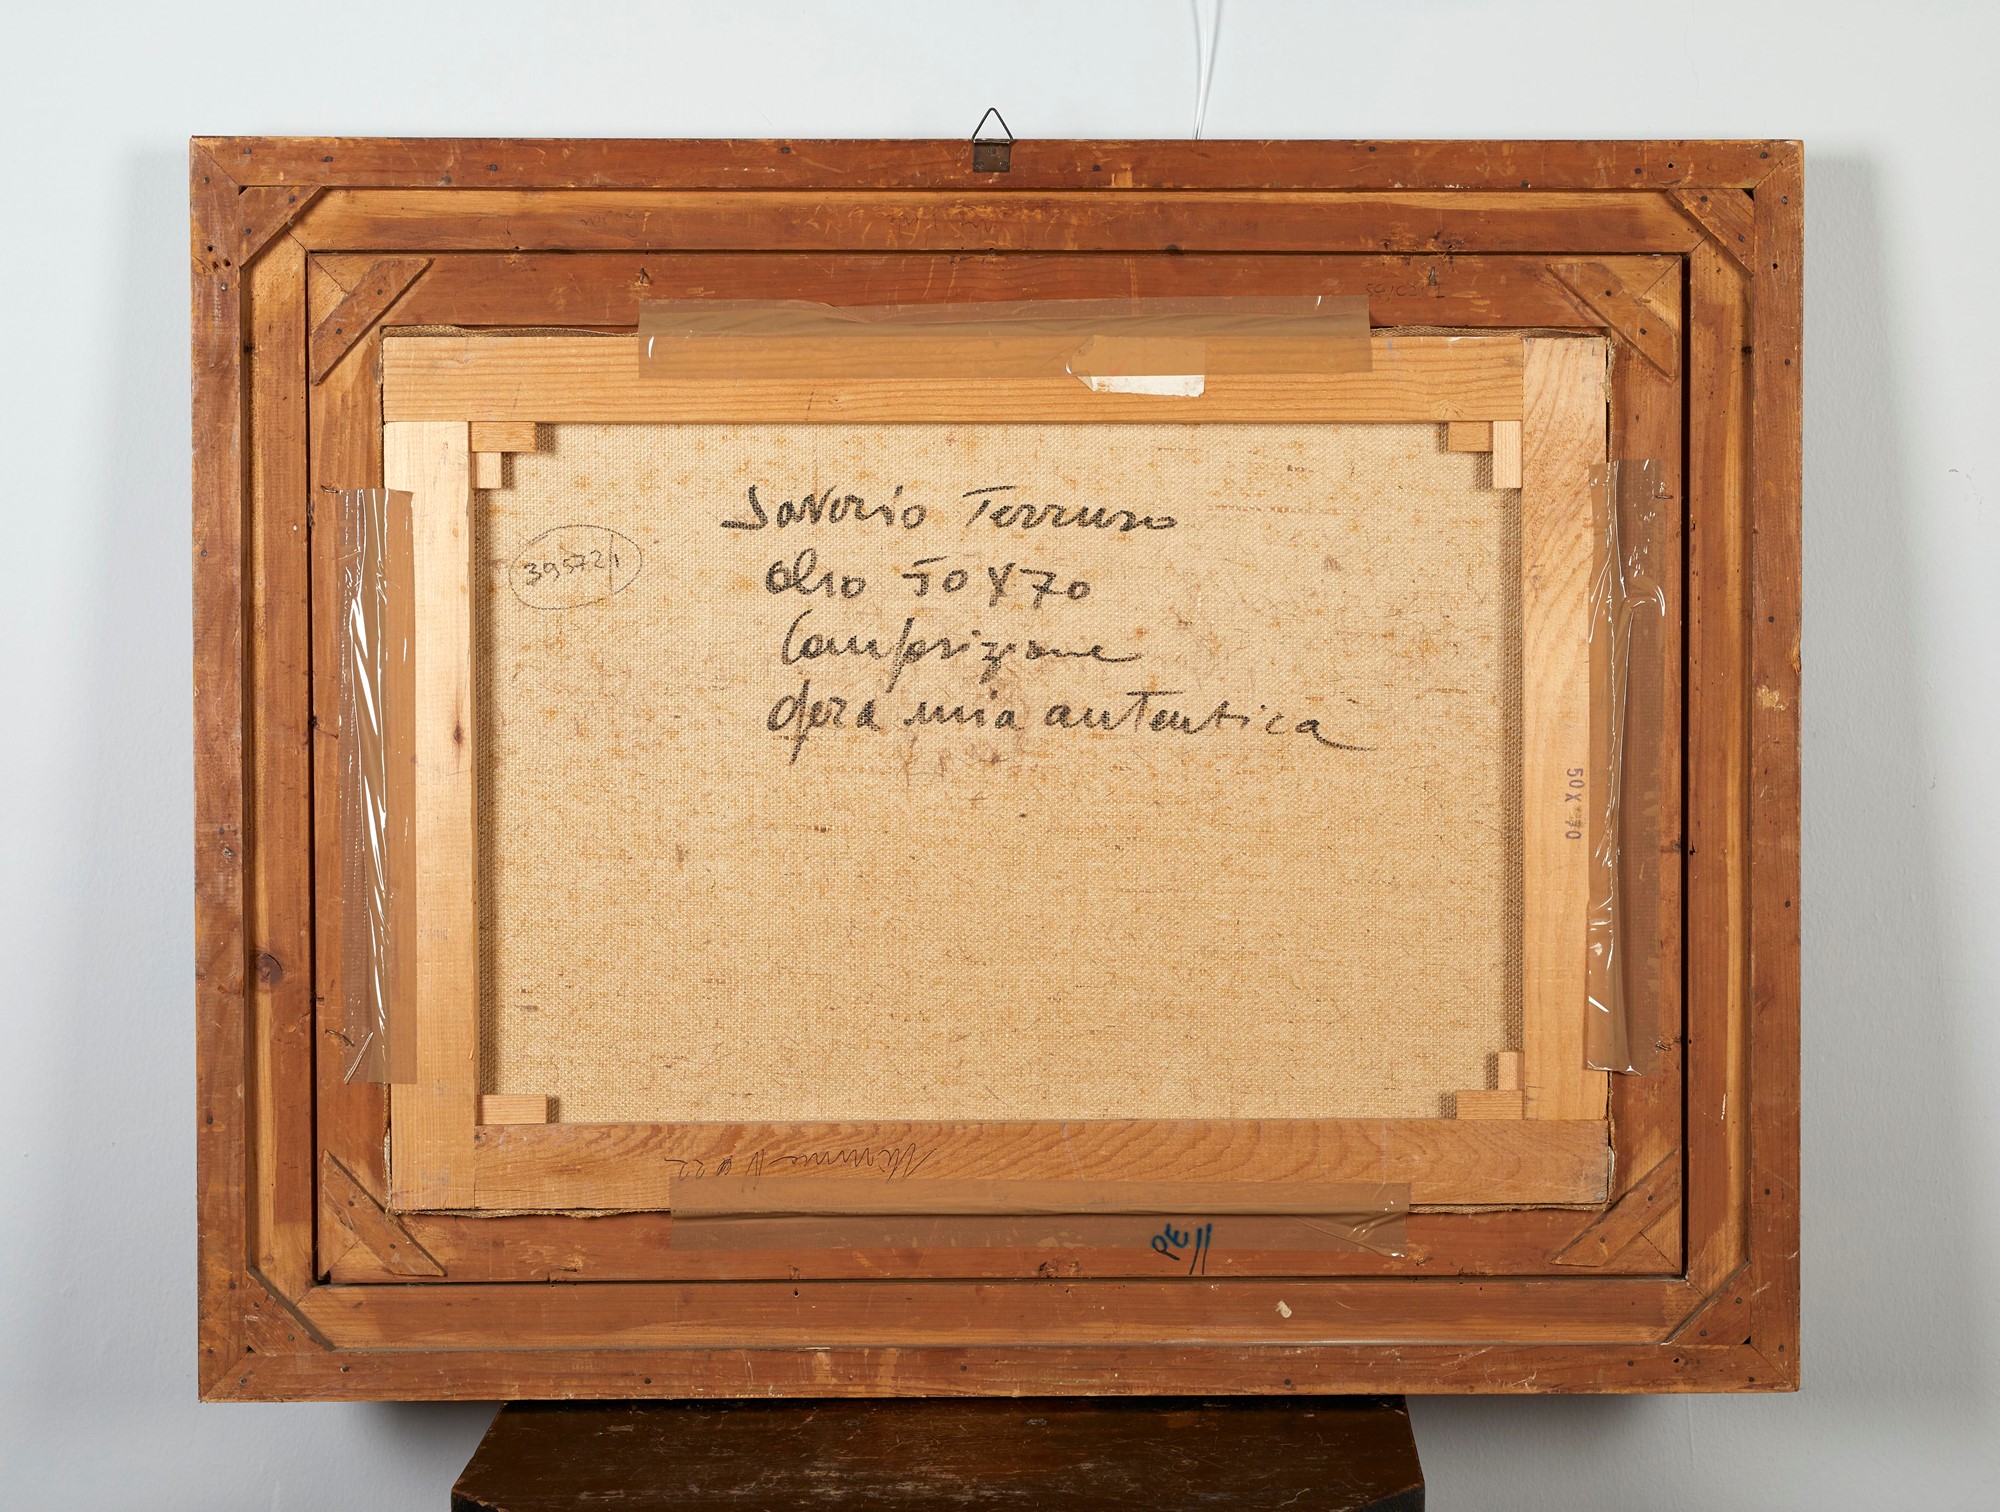 Saverio Terruso
olio 50 X 70
Composizione
opera mia autentica
39572/1
50 X 70
PE //